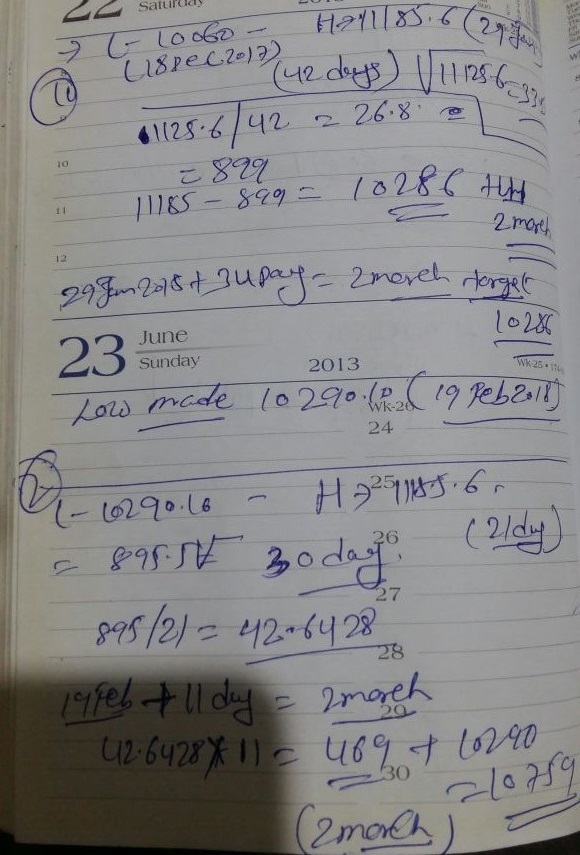 22 Saturday
→ L- 10060 - H→11185.6 (29 Jan
(18 Dec 2017)
(42 days) √11125.6 = 33.
①
1125.6 / 42 = 26.8 =
10
= 899
11 11185 - 899 = 10286
2 march
12
29 Jan 2018 + 34 Day = 2 march target
10286
23 June
Sunday 2013 Wk-25
Low made 10290.10 (19 Feb 2018)
Wk-26
24
②
25
L- 10290.10 - H→ 11185.6
(21 day)
26
= 895.5 30 day
27
895/21 = 42.6428
28
19 Feb + 11 day = 2 march
29
42.6428 * 11 = 469 + 10290
30
= 10759
(2 march)